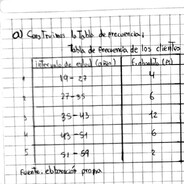 a) Construimos la Tabla de frecuencia:
Tabla de frecuencia de los clientes
Intervalo de edad (años) Frecuencia (fi)
1 19-27 4
2 27-35 6
3 35-43 12
4 43-51 6
5 51-59 2
Fuente, elaboración propia